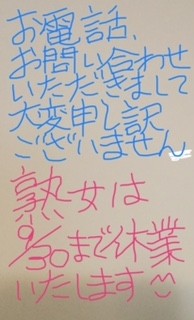 お電話、
お問い合わせ
いただきまして
大変申し訳
ございません
熟女は
9/30まで休業
いたします